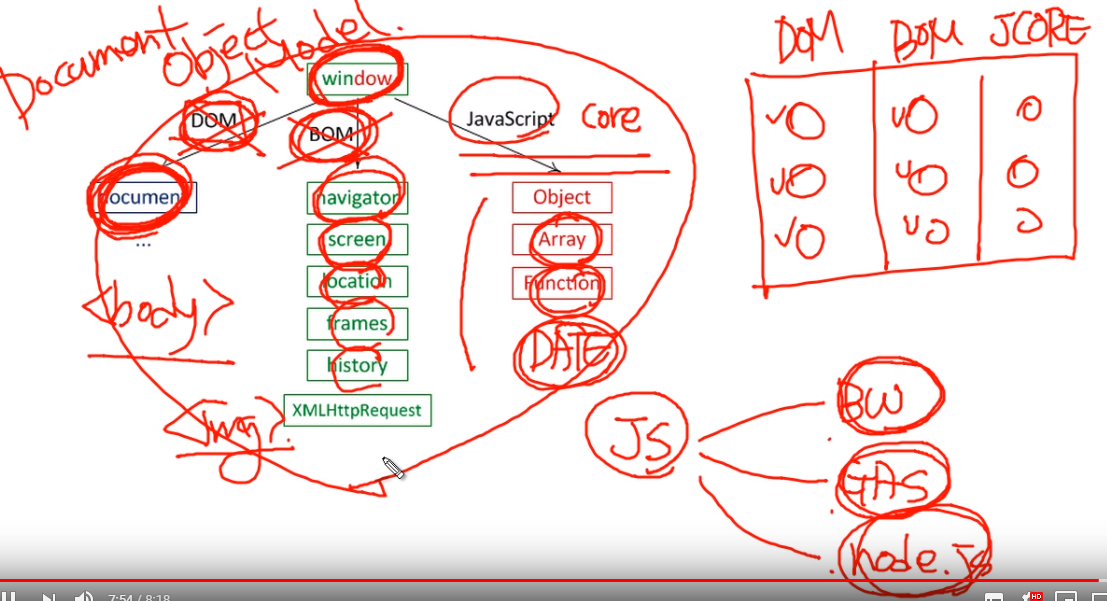 Document
Object
Model.
window
DOM
BOM
JavaScript
Core
document
navigator
screen
location
frames
history
XMLHttpRequest
...
Object
Array
Function
DATE
<body>
<img>
DOM BOM JCORE
JS
BW
GAS
node.js
7:54 / 8:18
HD